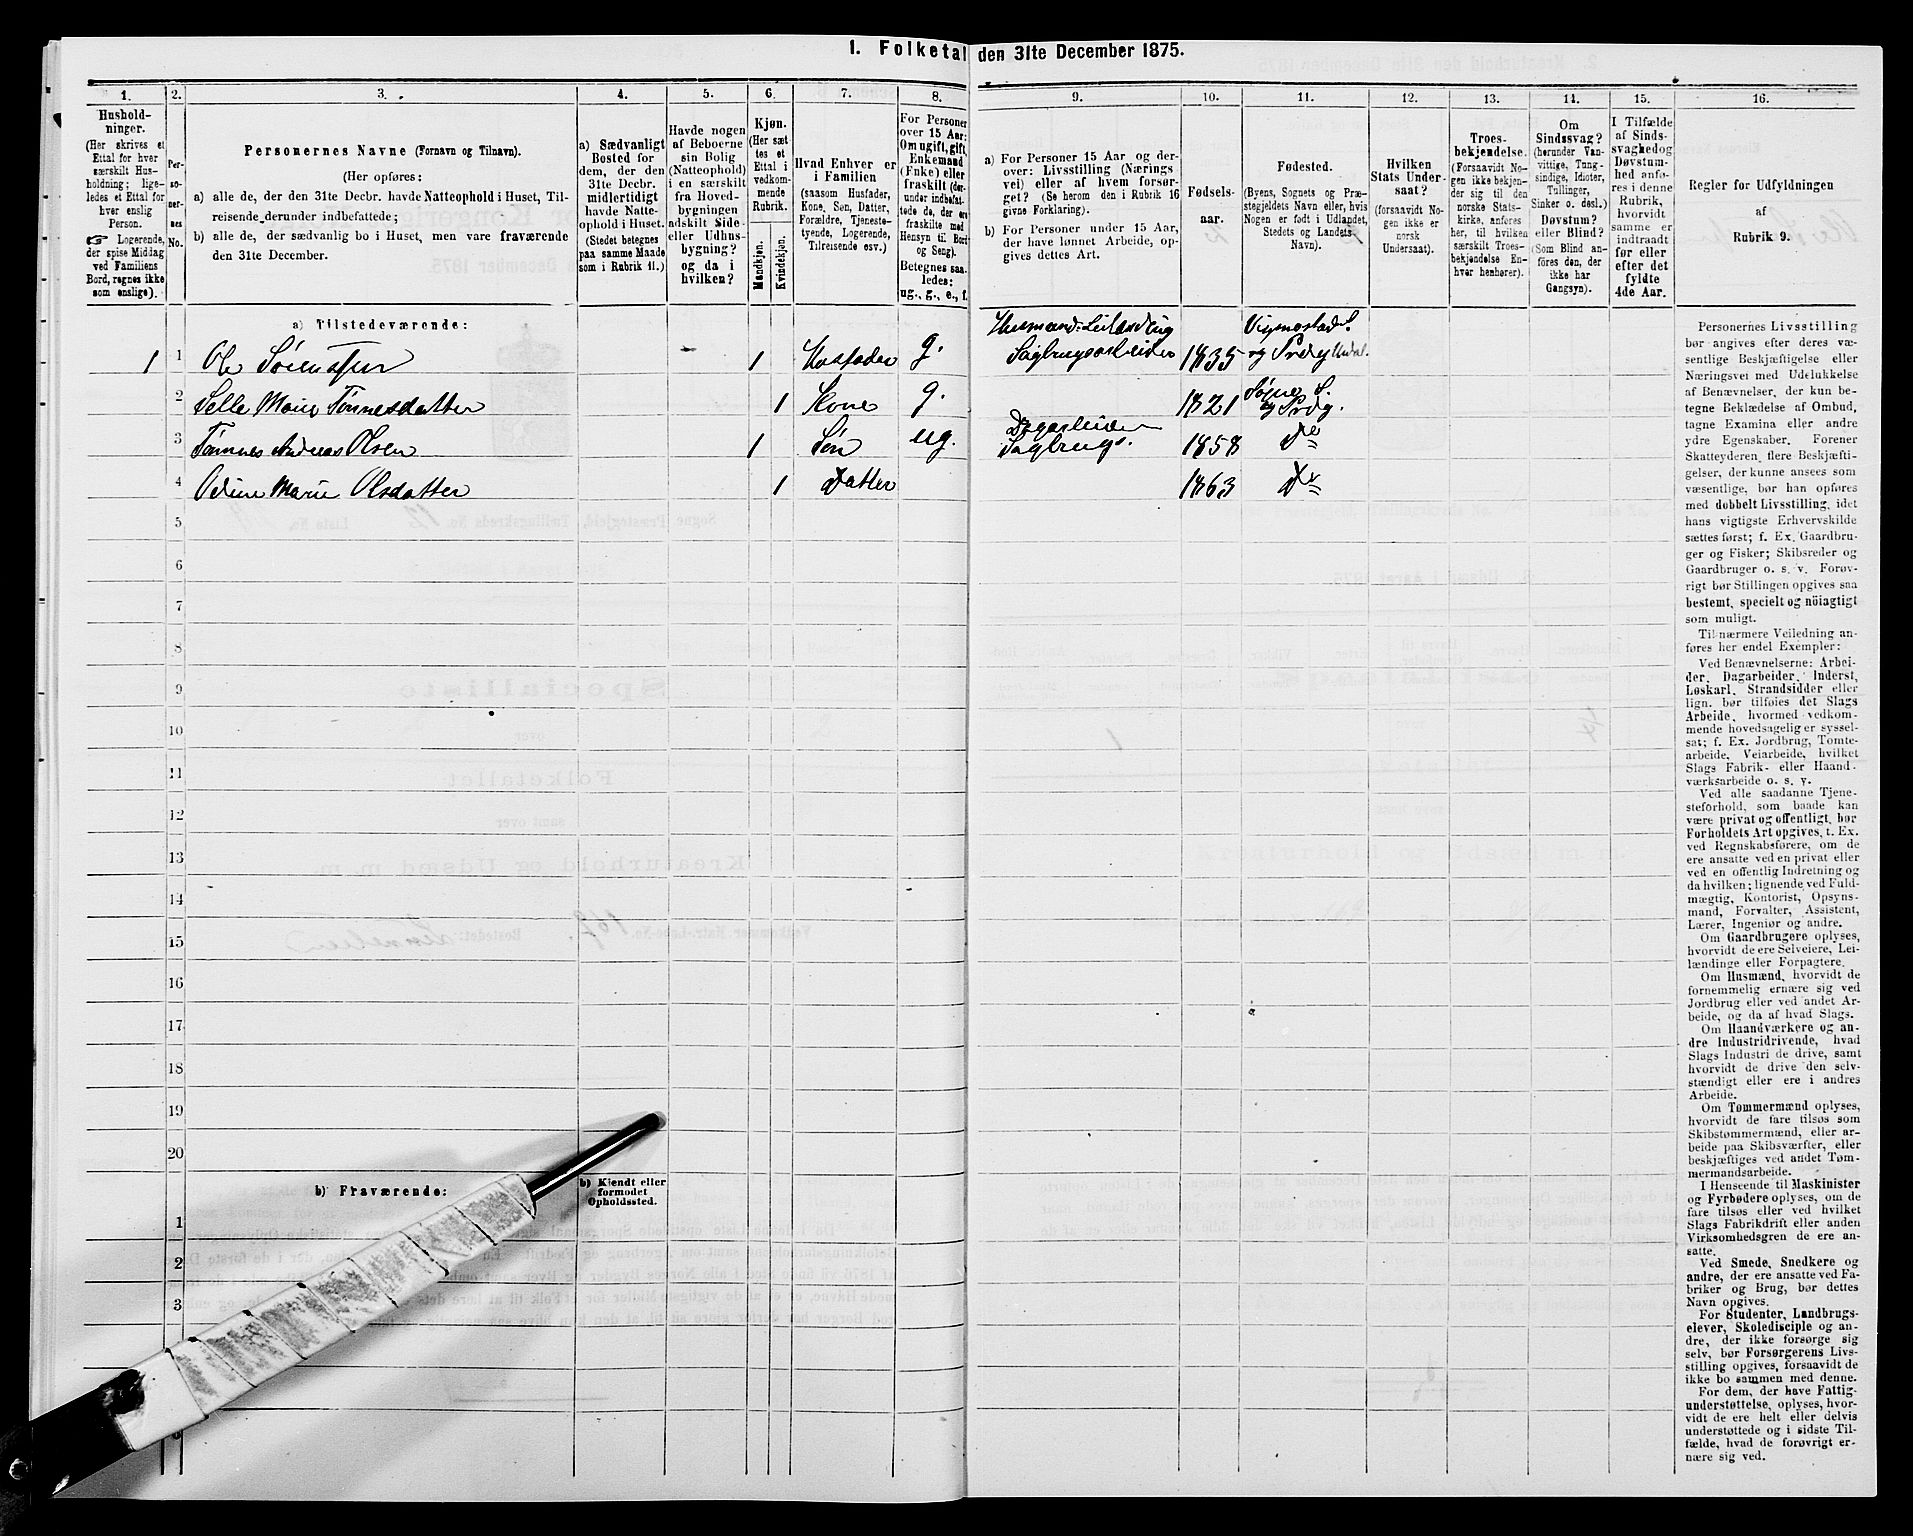 1. Folketal den 31te December 1875.
1.
Hushold-
ninger.
(Her skrives et
Ettal for hver
særskilt Hus-
holdning; lige-
ledes et Ettal for
hver enslig
Person.
☞ Logerende,
der spise Middag
ved Familiens
Bord, regnes ikke
som enslige).
2.
Per-
so-
ner-
nes
No.
3.
Personernes Navne (Fornavn og Tilnavn).
(Her opføres:
a) alle de, der den 31te Decbr. havde Natteophold i Huset, Til-
reisende derunder indbefattede;
b) alle de, der sædvanlig bo i Huset, men vare fraværende
den 31te December.
4.
a) Sædvanligt
Bosted for
dem, der den
31te Decbr.
midlertidigt
havde Natte-
ophold i Huset.
(Stedet betegnes
paa samme Maade
som i Rubrik 11.)
5.
Havde nogen
af Beboerne
sin Bolig
(Natteophold)
i en særskilt
fra Hoved-
bygningen
adskilt Side-
eller Udhus-
bygning?
og da i
hvilken?
6.
Kjøn.
(Her sæt-
tes et
Ettal i
vedkom-
mende
Rubrik.
Mandkjøn.
Kvindekjøn.
7.
Hvad Enhver er
i Familien
(saasom Husfader,
Kone, Søn, Datter,
Forældre, Tjeneste-
tyende, Logerende,
Tilreisende osv.)
8.
For Personer
over 15 Aar:
Om ugift, gift,
Enkemand
(Enke) eller
fraskilt (der-
under indbefat-
tede de, der ere
fraskilte med
Hensyn til Bord
og Seng).
Betegnes saa-
ledes:
ug., g., e., f.
9.
a) For Personer 15 Aar og der-
over: Livsstilling (Nærings-
vei) eller af hvem forsør-
get? (Se herom den i Rubrik 16
givne Forklaring).
b) For Personer under 15 Aar,
der have lønnet Arbeide, op-
gives dettes Art.
10.
Fødsels-
aar.
11.
Fødested.
(Byens, Sognets og Præ-
stegjeldets Navn eller, hvis
Nogen er født i Udlandet,
Stedets og Landets
Navn).
12.
Hvilken
Stats Under-
saat?
(forsaavidt No-
gen ikke er
norsk
Undersaat).
13.
Troes-
bekjendelse.
(Forsaavidt No-
gen ikke bekjen-
der sig til den
norske Stats-
kirke, anføres
her, til hvilken
særskilt Troes-
bekjendelse En-
hver henhører).
14.
Om
Sindssvag?
(herunder Van-
vittige, Tung-
sindige, Idioter,
Tullinger,
Sinker o. desl.)
Døvstum?
eller Blind?
(Som Blind an-
føres den, der
ikke har
Gangsyn).
15.
I Tilfælde
af Sinds-
svaghed og
Døvstum-
hed anfø-
res i denne
Rubrik,
hvorvidt
samme er
indtraadt
før eller
efter det
fyldte
4de Aar.
16.
Regler for Udfyldningen
af
Rubrik 9.
a) Tilstedeværende:
1 1 Ole Sørensen 1 Husfader g. Husmand: Leilænding Sagbrugsarbeider 1835 Vigmostad S. og Prdg
2 Selle Marie Tønnesdatter 1 Kone g. 1821 Søgne S. og Prdg.
3 Tønnes Andreas Olsen 1 Søn ug. Dagarbeider Sagbrug. 1858 Do
4 Odine Marie Olsdatter 1 Datter 1863 Do
5
6
7
8
9
10
11
12
13
14
15
16
17
18
19
20
b) Fraværende:
b) Kjendt eller
formodet
Opholdssted.
1
2
3
Personernes Livsstilling
bør angives efter deres væ-
sentlige Beskjæftigelse eller
Næringsvei med Udelukkelse
af Benævnelser, der kun be-
tegne Beklædelse af Ombud,
tagne Examina eller andre
ydre Egenskaber. Forener
Skatteyderen flere Beskjæfti-
gelser, der kunne ansees som
væsentlige, bør han opføres
med dobbelt Livsstilling, idet
hans vigtigste Erhvervskilde
sættes først; f. Ex. Gaardbru-
ger og Fisker; Skibsreder og
Gaardbruger o. s. v. Forøv-
rigt bør Stillingen opgives saa
bestemt, specielt og nöiagtigt
som muligt.
Til nærmere Veiledning an-
føres her endel Exempler:
Ved Benævnelserne: Arbei-
der, Dagarbeider, Inderst,
Løskarl, Strandsidder eller
lign. bør tilføies det Slags
Arbeide, hvormed vedkom-
mende hovedsagelig er syssel-
sat; f. Ex. Jordbrug, Tomte-
arbeide, Veiarbeide, hvilket
Slags Fabrik- eller Haand-
værksarbeide o. s. v.
Ved alle saadanne Tjene-
steforhold, som baade kan
være privat og offentligt, bør
Forholdets Art opgives, t. Ex.
ved Regnskabsførere, om de
ere ansatte ved en privat eller
ved en offentlig Indretning og
da hvilken; lignende ved Fuld-
mægtig, Kontorist, Opsyns-
mand, Forvalter, Assistent,
Lærer, Ingeniør og andre.
Om Gaardbrugere oplyses,
hvorvidt de ere Selveiere, Lei-
lændinge eller Forpagtere.
Om Husmænd, hvorvidt de
fornemmelig ernære sig ved
Jordbrug eller ved andet Ar-
beide, og da af hvad Slags.
Om Haandværkere og an-
dre Industridrivende, hvad
Slags Industri de drive, samt
hvorvidt de drive den selv-
stændigt eller ere i andres
Arbeide.
Om Tømmermænd oplyses,
hvorvidt de fare tilsøs som
Skibstømmermænd, eller ar-
beide paa Skibsværfter, eller
beskjæftiges ved andet Tøm-
mermandsarbeide.
I Henseende til Maskinister
og Fyrbødere oplyses, om de
fare tilsøs eller ved hvilket
Slags Fabrikdrift eller anden
Virksomhedsgren de ere an-
satte.
Ved Smede, Snedkere og
andre, der ere ansatte ved Fa-
briker og Brug, bør dettes
Navn opgives.
For Studenter, Landbrugs-
elever, Skoledisciple og an-
dre, der ikke forsørge sig
selv, bør Forsørgerens Livs-
stilling opgives, forsaavidt de
ikke bo sammen med denne.
For dem, der have Fattig-
understøttelse, oplyses, hvor-
vidt de ere helt eller delvis
understøttede og i sidste Til-
fælde, hvad de forøvrigt er-
nære sig ved.